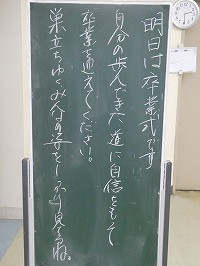 明日は卒業式です
自分の歩んできた道に自信をもって
卒業を迎えてください。
巣立ちゆくみんなの姿をしっかり見てるね。